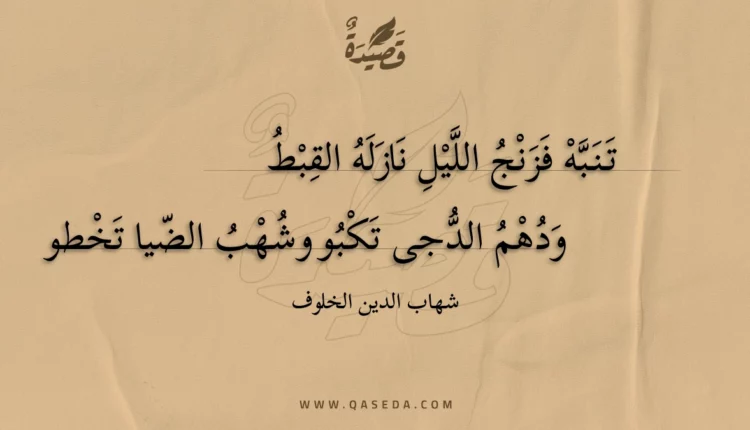 قَصِيْدَةٌ
تَنَبَّهْ فَزَنْجُ اللَّيْلِ نَازَلَهُ القِبْطُ
وَدُهْمُ الدُّجى تَكْبُو وشُهْبُ الضّيا تَخْطو
شهاب الدين الخلوف
WWW.QASEDA.COM